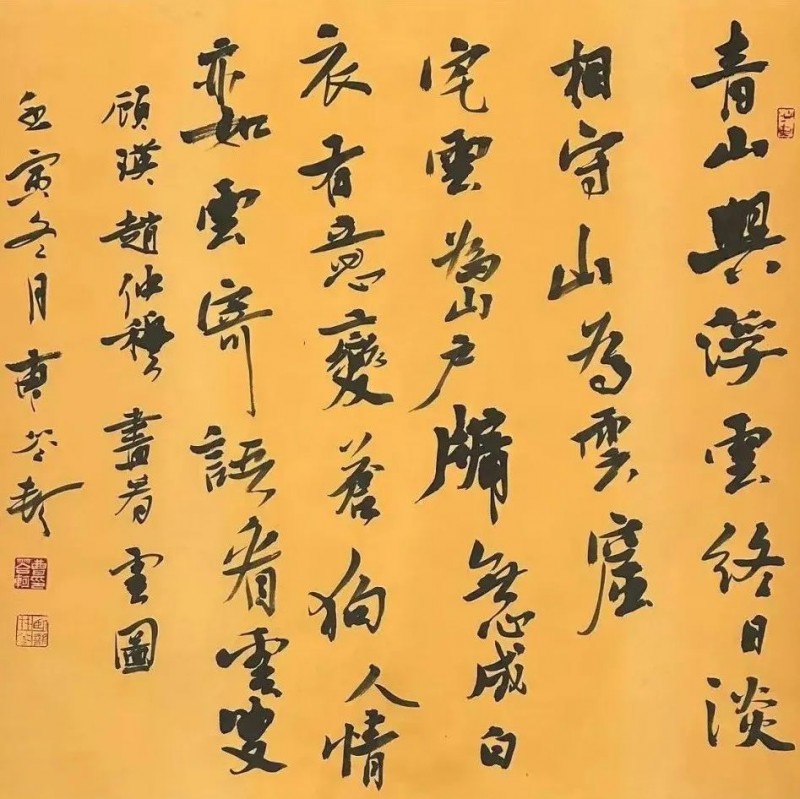 青山與浮雲終日淡
相守山為雲窟
宅雲為山戶牖無心成白
衣有意變蒼狗人情
亦如雲寄語看雲叟
顧瑛趙仲穆畫看雲圖
壬寅冬月曹谷